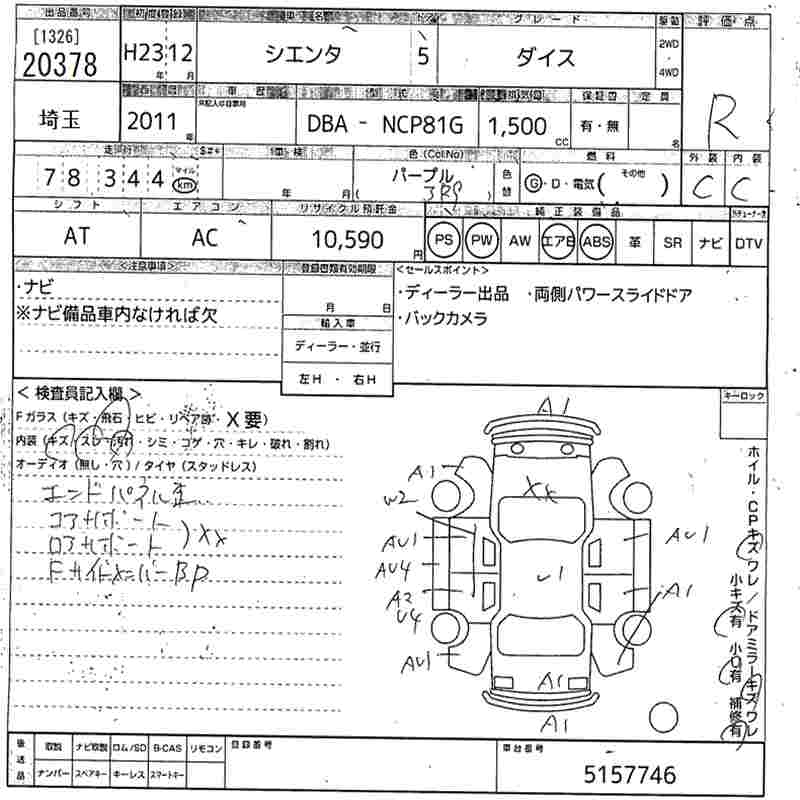 出品番号 初度登録 車名 ドア グレード 駆動 評価点
[1326]
20378 H23 12 シエンタ 5 ダイス 2WD・4WD R
年 月
車歴 型式 排気量 保証書 定員
埼玉 2011 年 DBA - NCP81G 1,500 cc 有・無 名
走行 車検 色(ColNo) 燃料 外装 内装
7 8 3 4 4 マイル km 年 月 パープル 色替 G・D・電気( その他 ) C C
シフト エアコン リサイクル預託金 純正装備品
AT AC 10,590 円 PS PW AW エアB ABS 革 SR ナビ DTV
<注意事項> 登録書類有効期限 <セールスポイント>
・ナビ 月 日 ・ディーラー出品 ・両側パワースライドドア
※ナビ備品車内なければ欠 輸入車 ・バックカメラ
ディーラー・並行
左H ・ 右H
<検査員記入欄> キーロック
Fガラス(キズ・飛石・ヒビ・リペア跡・X要)
内装(キズ・スレ・汚れ・シミ・コゲ・穴・キレ・破れ・割れ)
オーディオ(無し・穴)/タイヤ(スタッドレス)
エンドパネル歪
コアサポート
ロアサポート ) XX
FサイドメンバーBP
A1
A1
W2
XX
AU1
AU1
AU4
U1
A2
U4
A1
AU1
A1
A1
ホイル・CPキズワレ/ドアミラーキズワレ
小キズ有 小U有 補修有
後送品 取説 ナビ取説 ロム/SD B-CAS リモコン 登録番号 車台番号
ナンバー スペアキー キーレス スマートキー 5157746